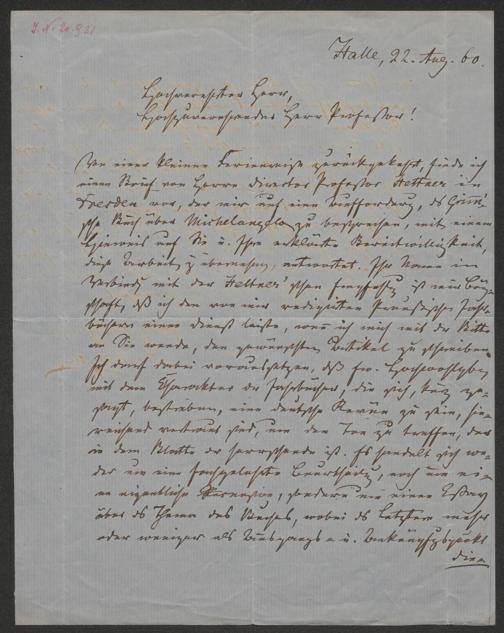 J. N. 20.921
Halle, 22. Aug. 60.
Hochverehrter Herr,
Hochzuverehrender Herr Professor!
Von einer kleinen Ferienreise zurückgekehrt, finde ich
einen Brief von Herrn Director Professor Hettner in
Dresden vor, der mir auf eine Aufforderung, das Grim-
sche Buch über Michelangelo zu besprechen, mit einem
Hinweis auf Sie u. Ihre erklärte Bereitwilligkeit,
diese Arbeit zu übernehmen, antwortet. Ihr Name in
Verbindung mit der Hettner'schen Empfehlung ist mir Bürg-
schaft, daß ich den von mir redigirten Preußischen Jahr-
büchern einen Dienst leiste, wenn ich mich mit der Bitte
an Sie wende, den gewünschten Artikel zu schreiben.
Ich darf dabei voraussetzen, daß Ew. Hochwohlgeb.
mit dem Charakter der Jahrbücher, die sich, kurz ge-
sagt, bestreben, eine deutsche Revue zu sein, hin-
reichend vertraut sind, um den Ton zu treffen, der
in dem Blatte der herrschende ist. Es handelt sich we-
der um eine fachgelehrte Beurtheilung, noch um ei-
ne eigentliche Recension, sondern um einen Essay
über das Thema des Buches, wobei das Letztere mehr
oder weniger als Ausgangs- u. Anknüpfungspunkt
dien-